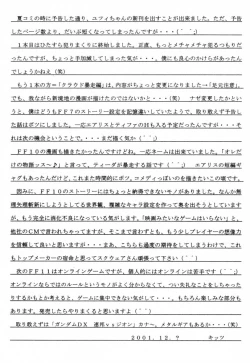 夏コミの時に予告した通り、ユフィちゃんの新刊を出すことが出来ました。ただ、予告
したページ数より、だいぶ短くなってしまったんですが・・・(＾＾;)
１本目はひたすら犯りまくりに終始しました。正直、もっとメチャメチャ犯るつもりだ
ったんですが、ちょっと手加減してしまった気が・・・。僕にも良心のかけらがあったん
でしょうかねえ(笑)
もう１本の方＝「クラウド暴走編」は、内容がちょっと変更になりました→「足元注意」。
でも、我ながら新境地の漫画が描けたのではないかと・・・(笑)　なぜ変更したかとい
うと、僕はどうもＦＦ７のストーリー設定を記憶違いしていたようで、取り敢えず予告し
た話はボツにしました。一応エアリスとティファの百合も入る予定だったんですが・・・そ
れは次の機会ということで、・・・まだ描く気か(＾＾;)
ＦＦ１０の漫画も描きたかったんですけどね。一応ネームは出来ていました。「オレだ
けの物語ッス～♪」と言って、ティーダが暴走する話です(＾＾;)　エアリスの短編ギ
ャグもあったんだけど、これまた時間的にボツ。コメディっぽいのを描きたいこの頃です。
因みに、ＦＦ１０のストーリーにはちょっと納得できないモノがありました。なんか無
理矢理斬新にしようとしてる世界観、複雑なキャラ設定を作って奥を出そうとしています
が、もう完全に消化不良になっている気がします。「映画みたいなゲームはいらない」と、
他社のＣＭで言われちゃってますが、そこまで言わずとも、もう少しプレイヤーの想像力
を信頼して良いと思いますが・・・まあ、こちらも過度の期待をしてしまうわけで、これ
もトップメーカーの宿命と思ってスクウェアさん頑張って下さい(＾＾;)
次のＦＦ１１はオンラインゲームですが、個人的にはオンラインは苦手です(＾＾;)
オンラインならではのルールというモノがよく分からなくて、つい失礼なことをしちゃった
りするかもとか考えると、ゲームに集中できない気がして・・・。もちろん楽しみな部分も
あります。発売したらやりまくると思いますが(＾＾;)
取り敢えずは「ガンダムＤＸ　連邦ｖｓジオン」カナ～。メタルギアもあるか・・・(笑)
２００１．１２．？　キッツ